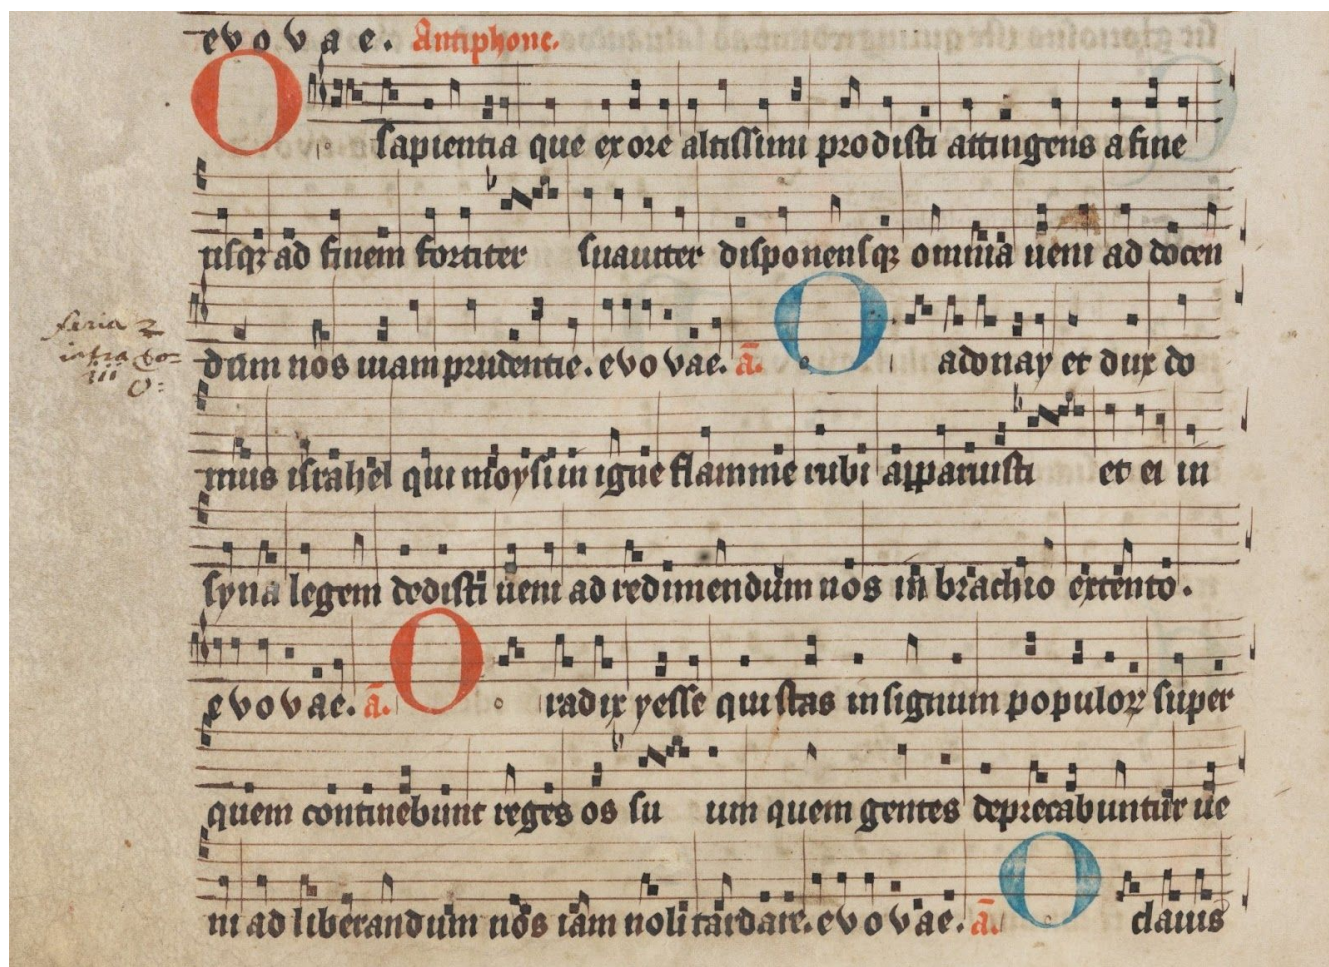 evovae. Antiphone.
O sapientia que ex ore altissimi prodisti attingens a fine
usqz ad finem fortiter suauiter disponensqz omnia ueni ad docen
dum nos uiam prudentie. evovae. ā. O adonay et dux do
feria 2
infra
iii
O:
mus israhel qui moysi in igne flamme rubi apparuisti et ei in
syna legem dedisti ueni ad redimendum nos in brachio extento.
evovae. ā. O radix yesse qui stas in signum populoꝝ super
quem continebunt reges os suum quem gentes deprecabuntur ue
ni ad liberandum nos iam noli tardare. evovae. ā. O clauis